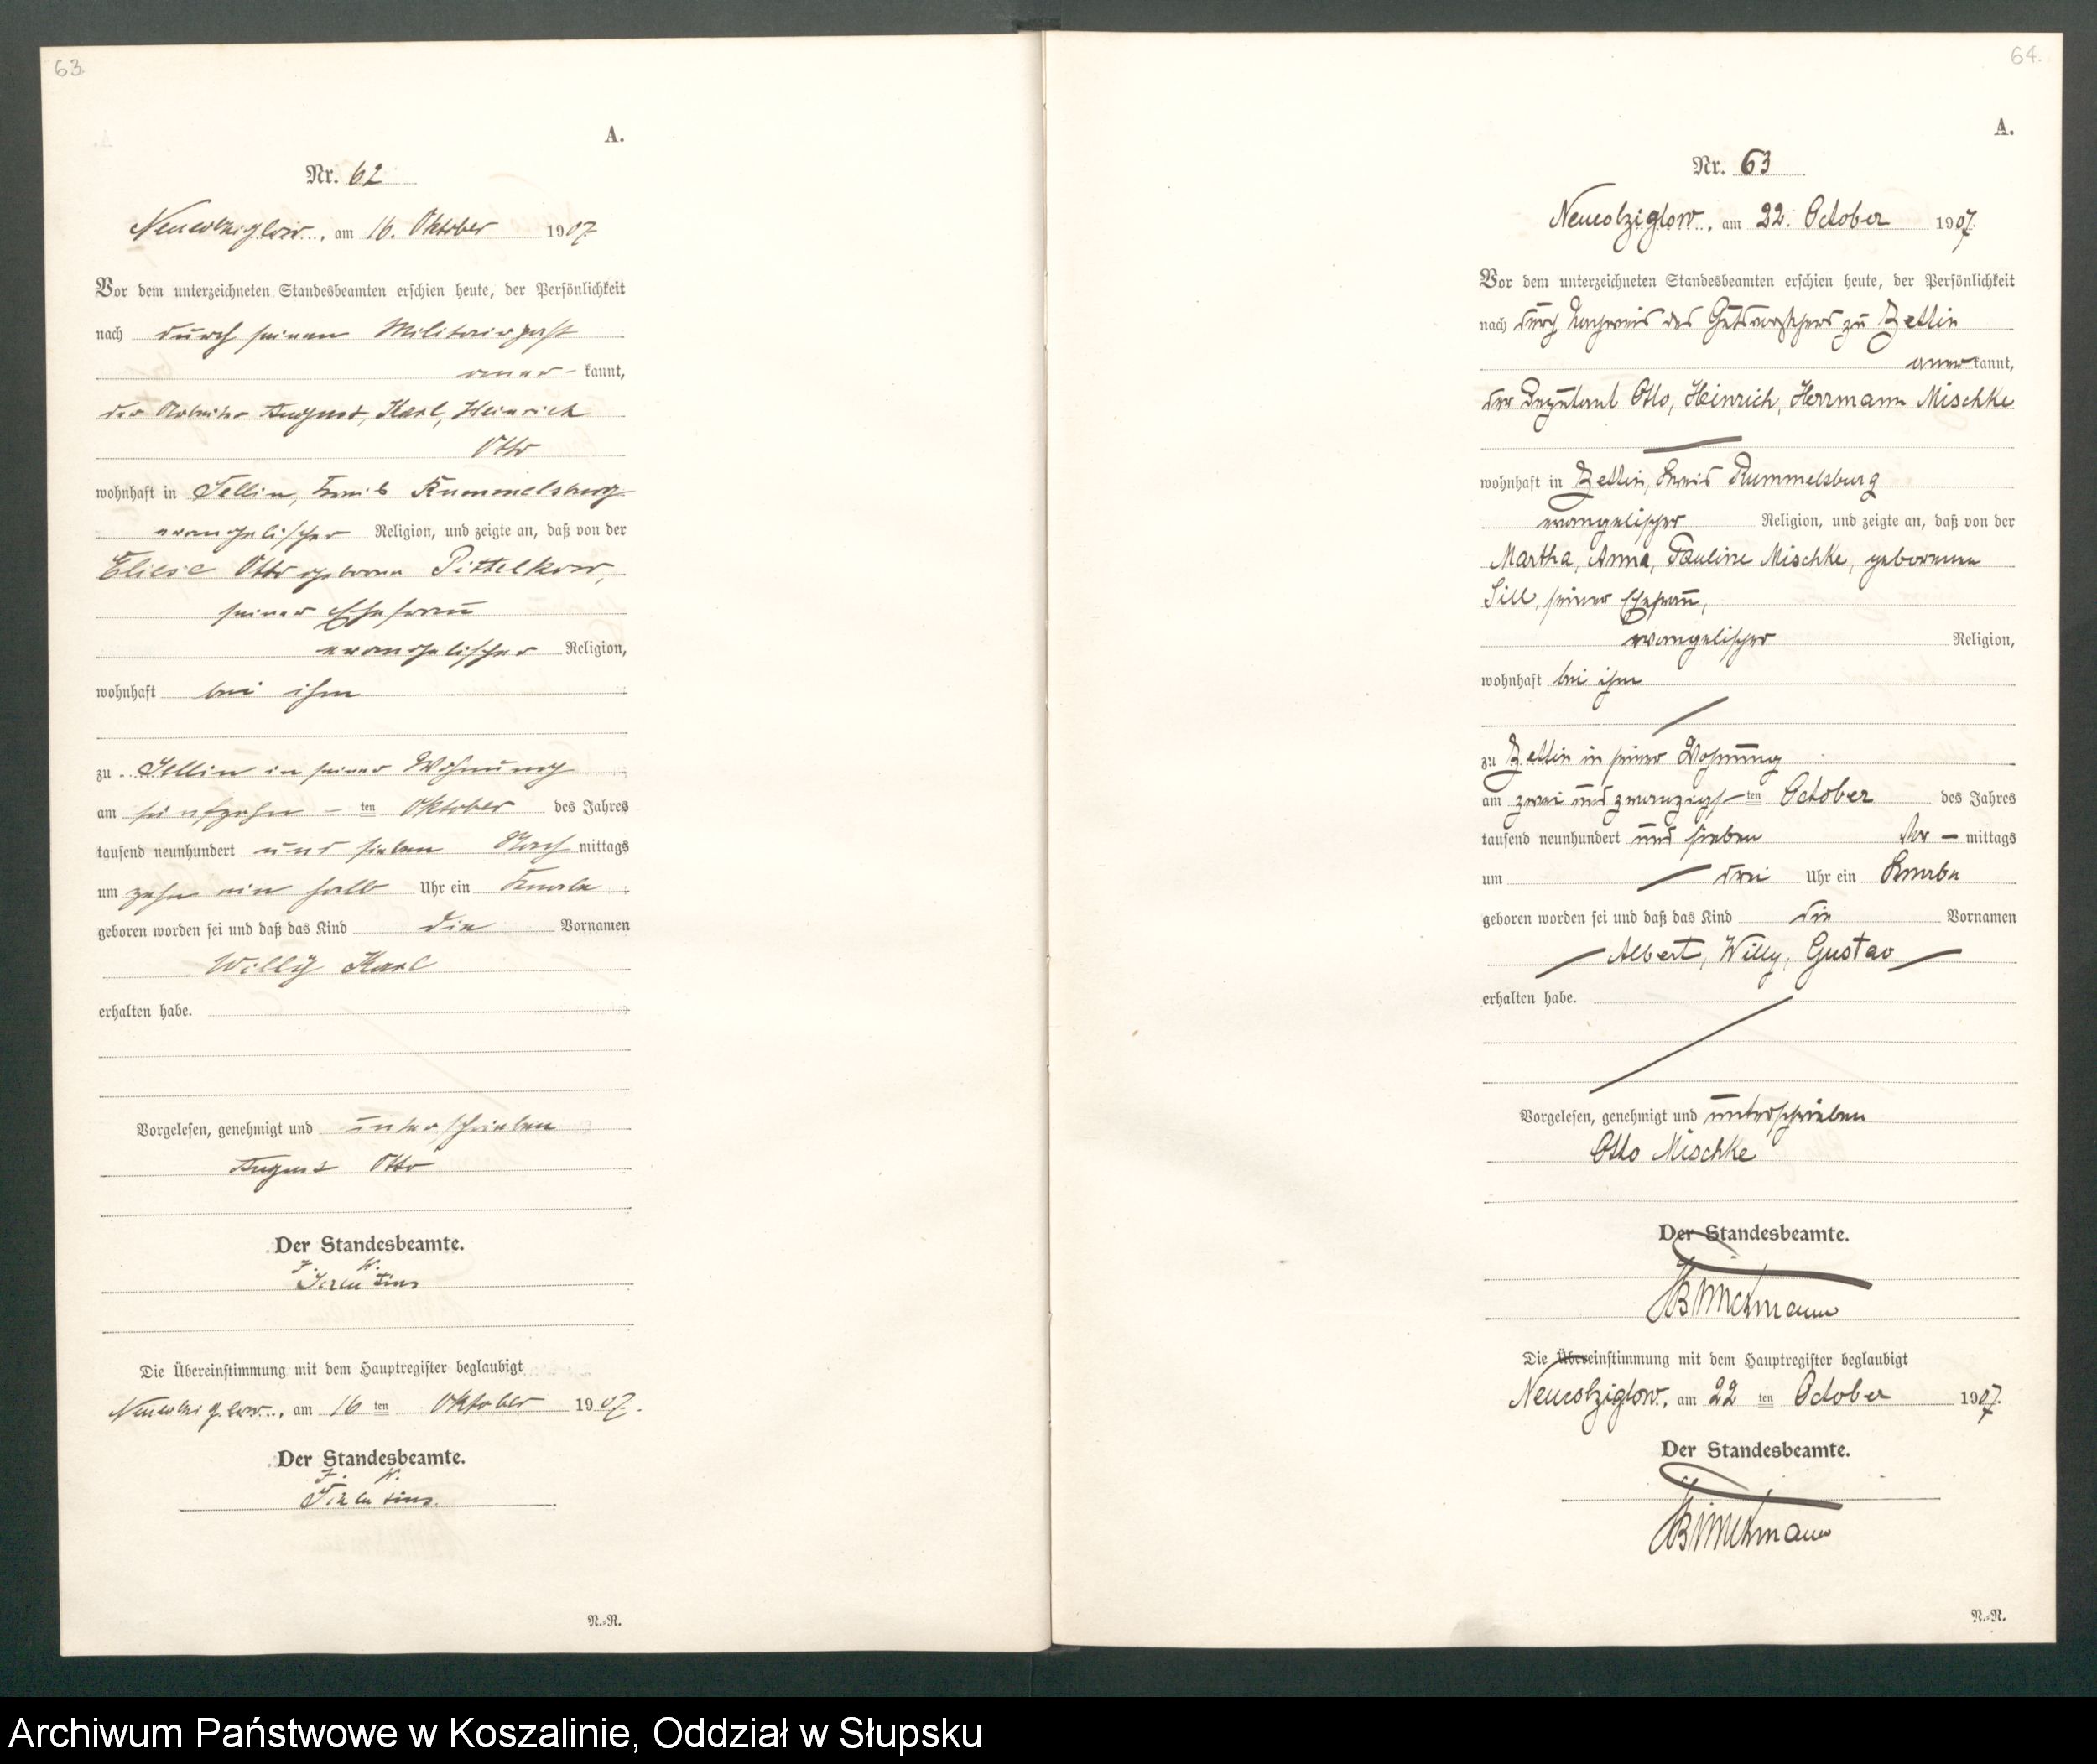 63.
A.
Nr. 62
Neukolziglow, am 16. Oktober 1907
Vor dem unterzeichneten Standesbeamten erschien heute, der Persönlichkeit
nach durch seinen Militairpaß
aner- kannt,
der Arbeiter August, Karl, Heinrich
Otto
wohnhaft in Sellin, Kreis Rummelsburg
evangelischer Religion, und zeigte an, daß von der
Eliese Otto geborene Pittelkow,
seiner Ehefrau
evangelischer Religion,
wohnhaft bei ihm
zu Sellin in seiner Wohnung
am fünfzehn - ten Oktober des Jahres
tausend neunhundert und sieben Nach mittags
um zehn ein halb Uhr ein Knabe
geboren worden sei und daß das Kind die Vornamen
Willy Karl
erhalten habe.
Vorgelesen, genehmigt und unterschrieben
August Otto
Der Standesbeamte.
J. V.
Die Übereinstimmung mit dem Hauptregister beglaubigt
Neukolziglow, am 16 ten Oktober 1907.
Der Standesbeamte.
J. V.
N.-N.
64.
A.
Nr. 63
Neucolziglow, am 22. October 1907.
Vor dem unterzeichneten Standesbeamten erschien heute, der Persönlichkeit
nach durch Nachweis des Gutsvorstehers zu Zettin
aner kannt,
der Deputant Otto, Heinrich, Herrmann Mischke
wohnhaft in Zettin, Kreis Rummelsburg
evangelischer Religion, und zeigte an, daß von der
Martha, Anna, Pauline Mischke, geborenen
Sill, seiner Ehefrau,
evangelischer Religion,
wohnhaft bei ihm
zu Zettin in seiner Wohnung
am zwei und zwanzigs- ten October des Jahres
tausend neunhundert und sieben Vor - mittags
um drei Uhr ein Knabe
geboren worden sei und daß das Kind die Vornamen
Albert, Willy, Gustav
erhalten habe.
Vorgelesen, genehmigt und unterschrieben
Otto Mischke
Der Standesbeamte.
Die Übereinstimmung mit dem Hauptregister beglaubigt
Neucolziglow, am 22 ten October 1907.
Der Standesbeamte.
N.-N.
Archiwum Państwowe w Koszalinie, Oddział w Słupsku